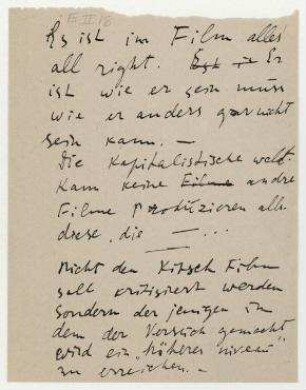 E II 18
Es ist im Film alles
all right. Er
ist wie er sein muss
wie er anders gar nicht
sein kann. —
Die Kapitalistische welt.
Kann keine Filme andre
Filme Produzieren als
diese, die — ...
Nicht den Kitsch Film
soll kritisiert werden
sondern der jenigen in
dem der Versuch gemacht
wird ein „höheres niveau"
zu erreichen. —